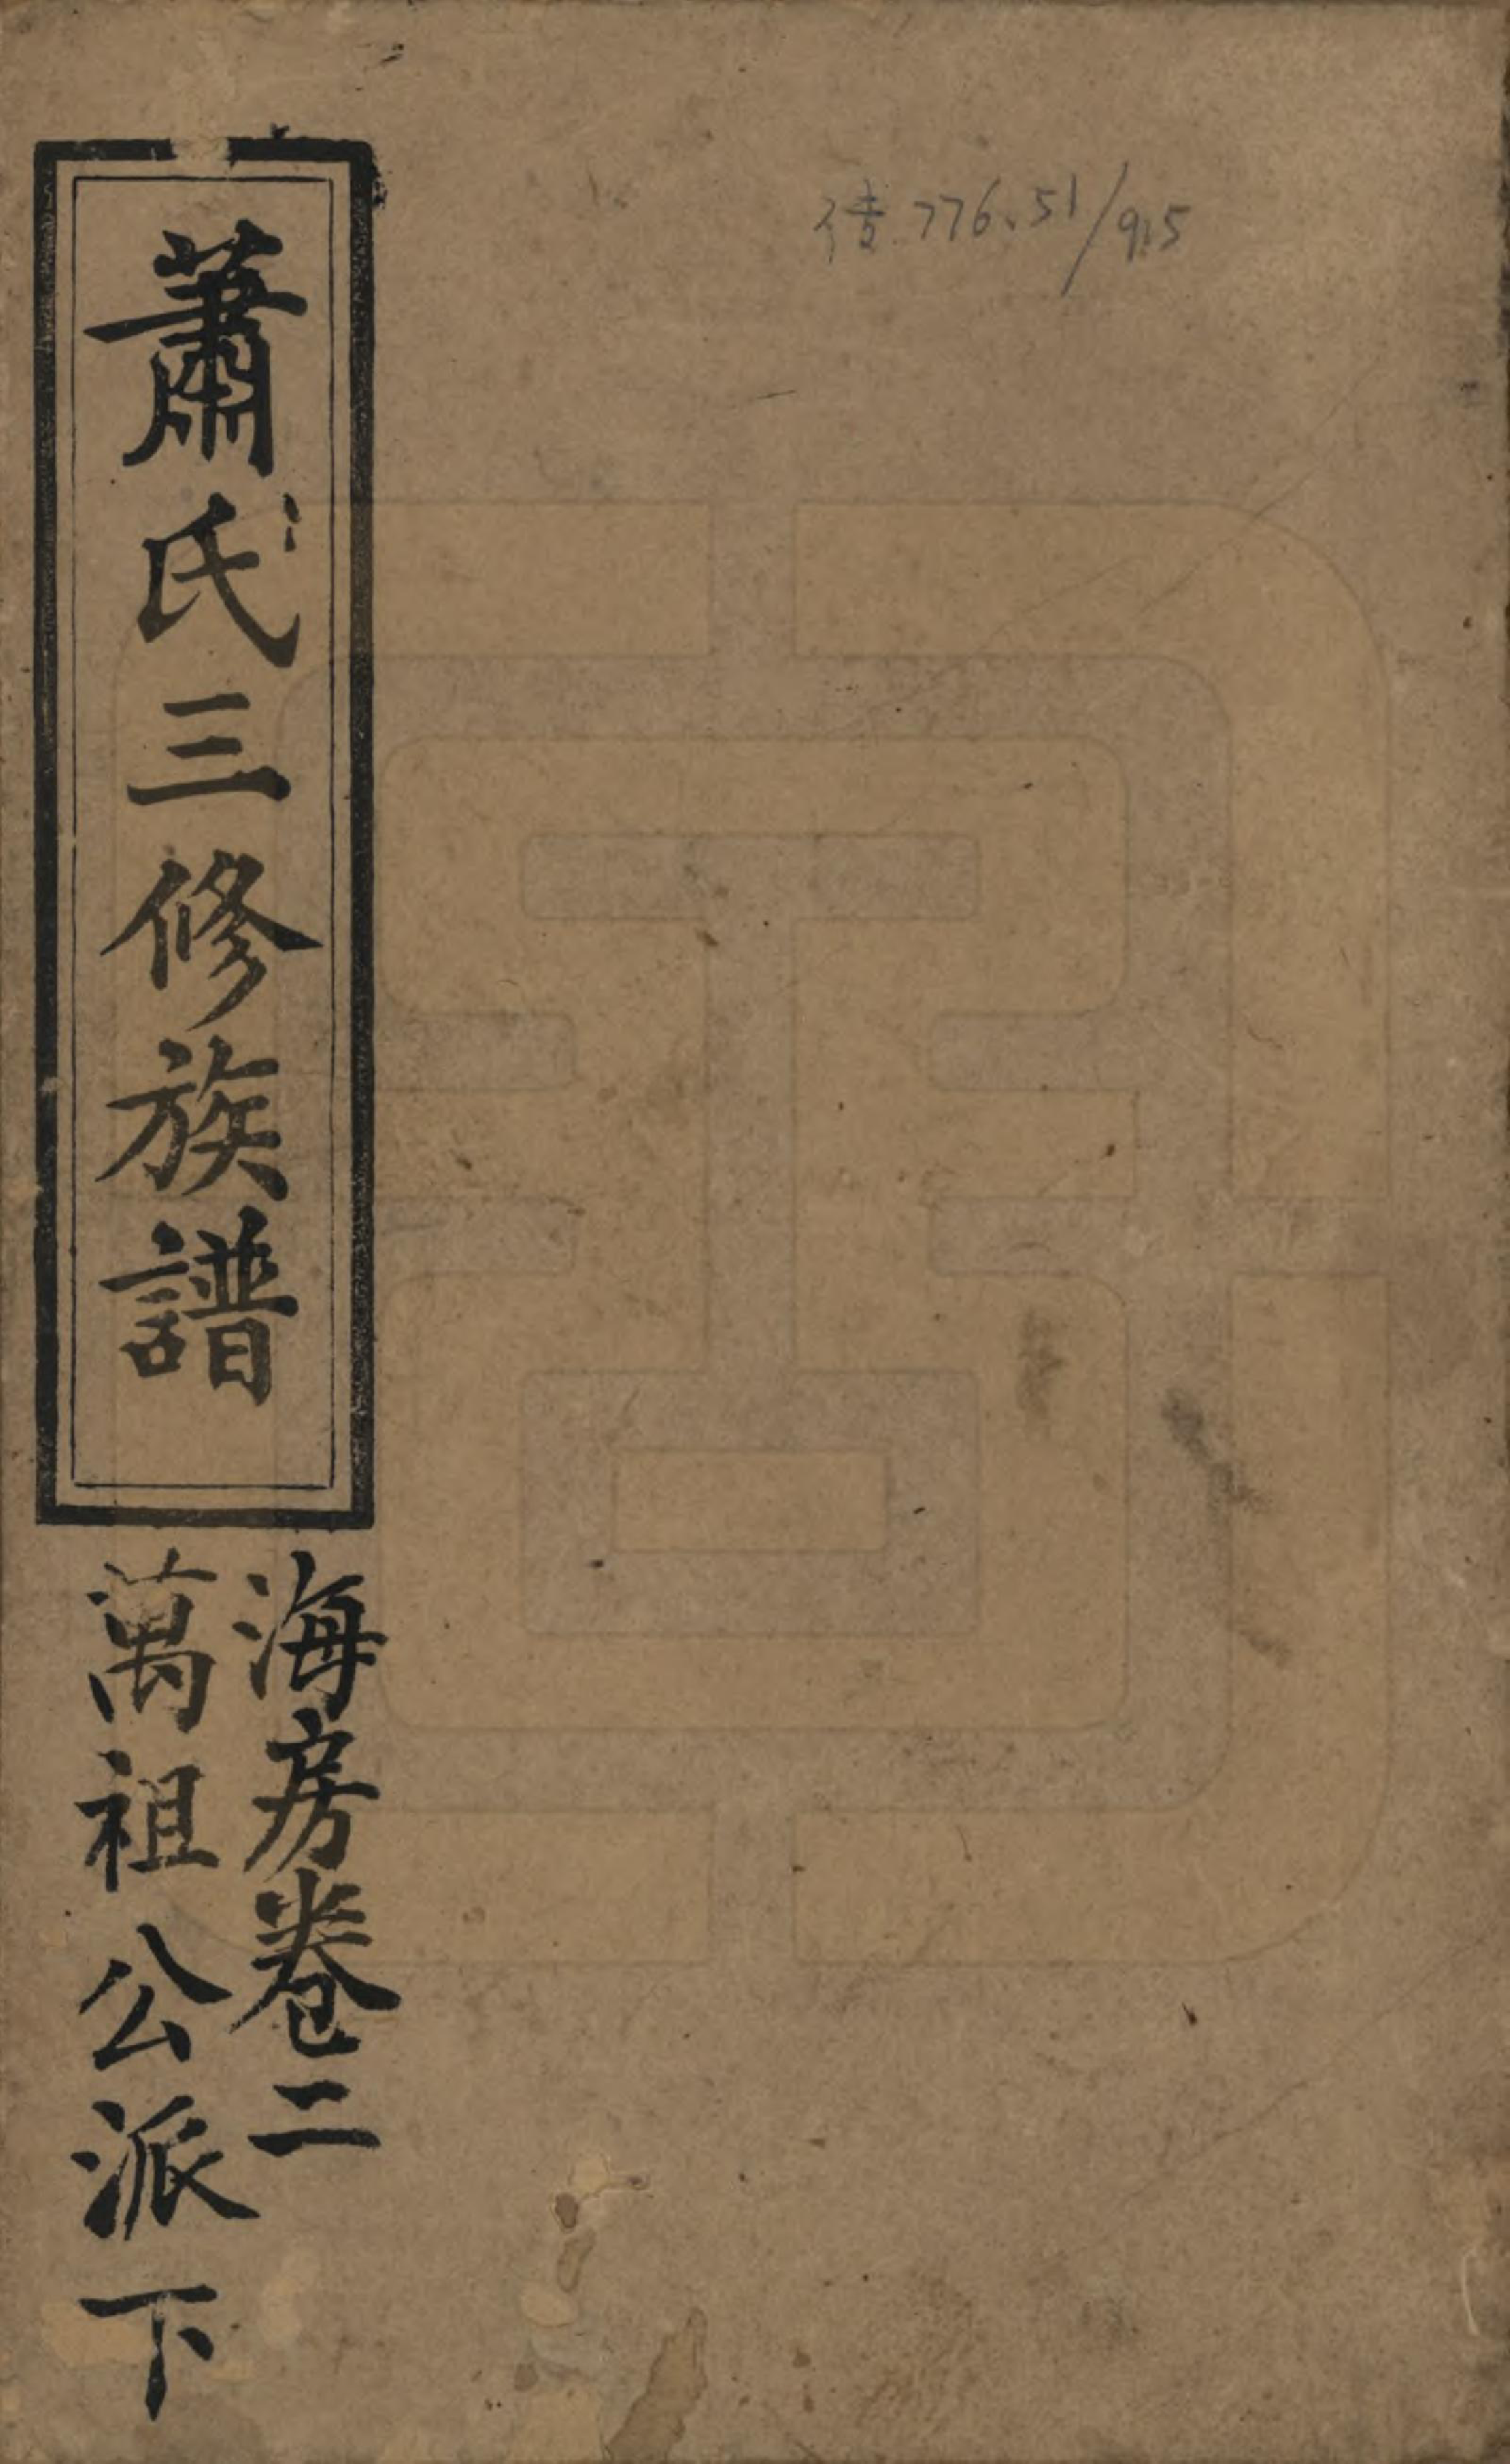 蕭氏三修族譜
海房卷二
萬祖公派下
传.776.51/915